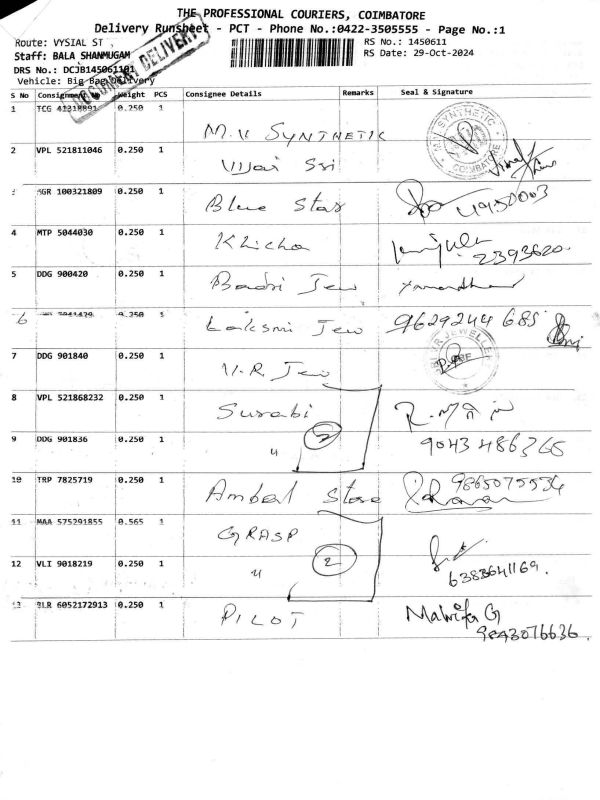 THE PROFESSIONAL COURIERS, COIMBATORE
Delivery Runsheet - PCT - Phone No.:0422-3505555 - Page No.:1
Route: VYSIAL ST
RS No.: 1450611
Staff: BALA SHANMUGAM
RS Date: 29-Oct-2024
DRS No.: DCJB145061101
Vehicle: Big Bag Delivery
DOCUMENT DELIVERY
S No Consignment No Weight PCS Consignee Details Remarks Seal & Signature
1 TCG 41218891 0.250 1 M.V SYNTHETIC
M.V. SYNTHETIC COIMBATORE
2 VPL 521811046 0.250 1 Vijai Sri
GR 100321809 0.250 1 Blue Star 4950003
4 MTP 5044030 0.250 1 Khicha 2393620
5 DDG 900420 0.250 1 Badri Jew
6 0.250 Laksmi Jew 9629244 685
7 DDG 901840 0.250 1 V.R. Jew
8 VPL 521868232 0.250 1 Surabi
9 DDG 901836 0.250 1 " 2 9043 486365
10 TRP 7825719 0.250 1 Ambal Store 9865075534
11 MAA 575291855 0.565 1 GRASP
12 VLI 9018219 0.250 1 " 2 6383641169.
13 BLR 6052172913 0.250 1 PILOT
9843076636.